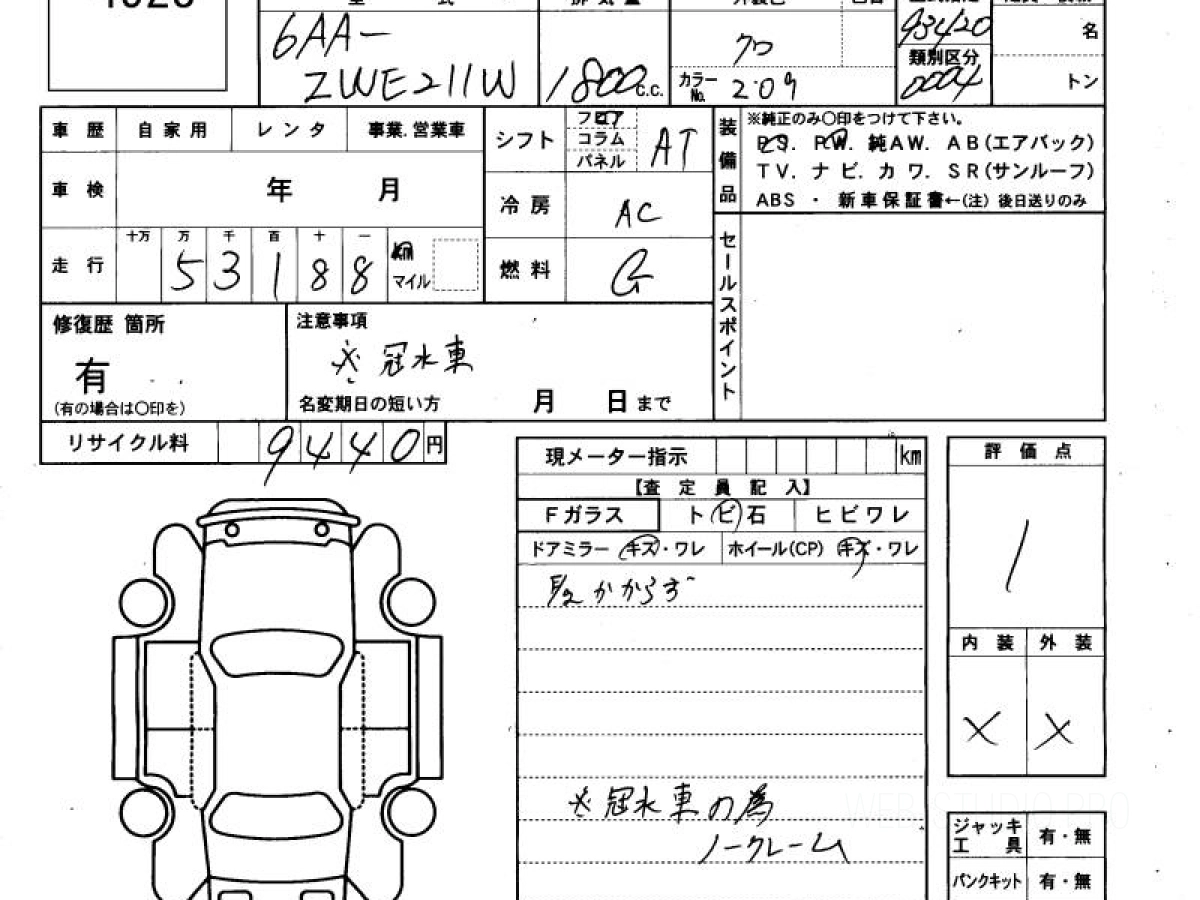 6AA-
ZWE211W
1800 c.c.
クロ
カラーNo. 209
93420
類別区分
0004
名
トン
車歴 自家用 レンタ 事業.営業車
車検 年 月
走行 十万 万 千 百 十 一
53188 km マイル
シフト フロア コラム パネル AT
冷房 AC
燃料 G
装備品
※純正のみ〇印をつけて下さい。
PS. PW. 純AW. AB(エアバック)
TV. ナビ. カワ. SR(サンルーフ)
ABS ・ 新車保証書←(注) 後日送りのみ
セールスポイント
修復歴 箇所
有
(有の場合は〇印を)
注意事項
※冠水車
名変期日の短い方 月 日まで
リサイクル料 9440円
現メーター指示 km
【査定員記入】
Fガラス トビ石 ヒビワレ
ドアミラー キズ・ワレ ホイール(CP) キズ・ワレ
かからず
※冠水車の為
ノークレーム
評価点
1
内装 外装
× ×
ジャッキ工具 有・無
パンクキット 有・無
WEB STUDIO PRO